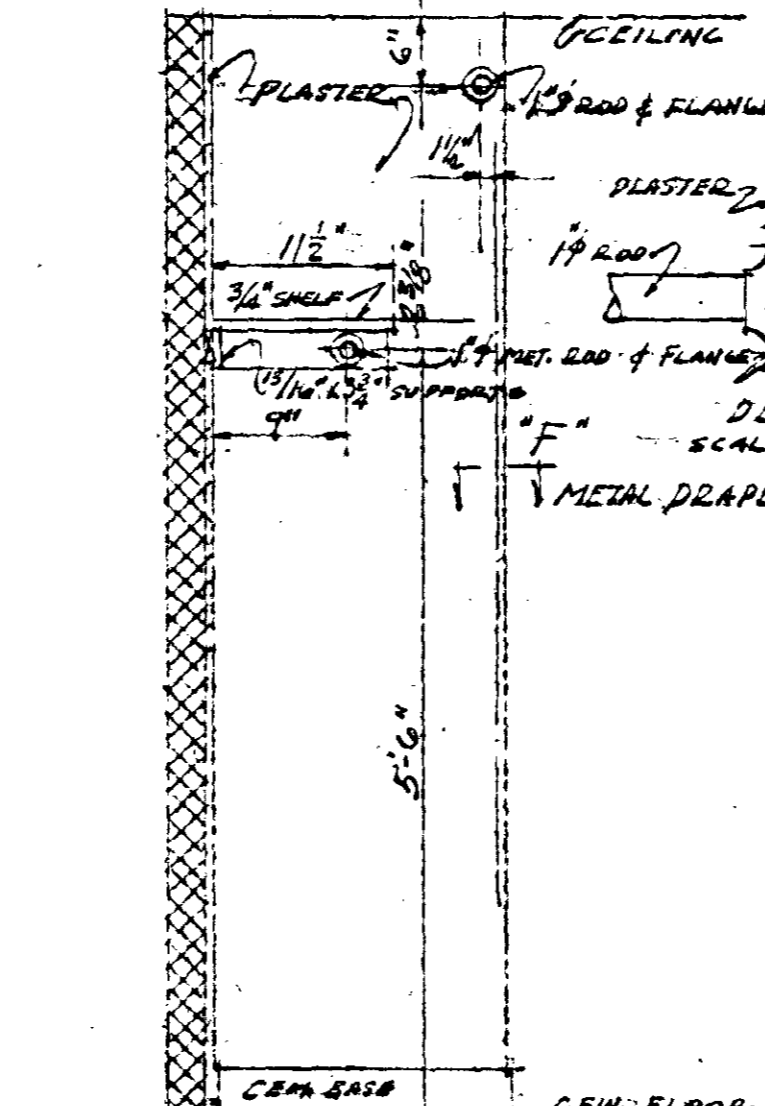 CEILING
6"
PLASTER
1"φ ROD & FLANGE
1½"
PLASTER
11½"
1"φ ROD
3/4" SHELF
2 3/8"
1"φ MET. ROD & FLANGE
13/16" x 3 3/4" SUPPORTS
9"
"F"
SCAL
METAL DRAPE
5'-6"
CEM. BASE
CEM. FLOOR